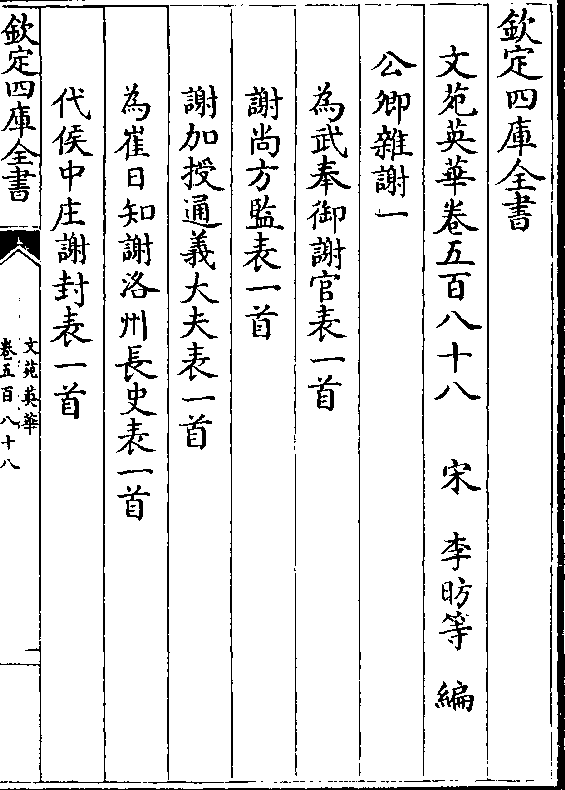 欽定四庫全書
文苑英華卷五百八十八　宋　李昉等　編
公卿雜謝一
為武奉御謝官表一首
謝尚方監表一首
謝加授通義大夫表一首
為崔日知謝洛州長史表一首
代侯中庄謝封表一首
欽定四庫全書
文苑英華
卷五百八十八
一